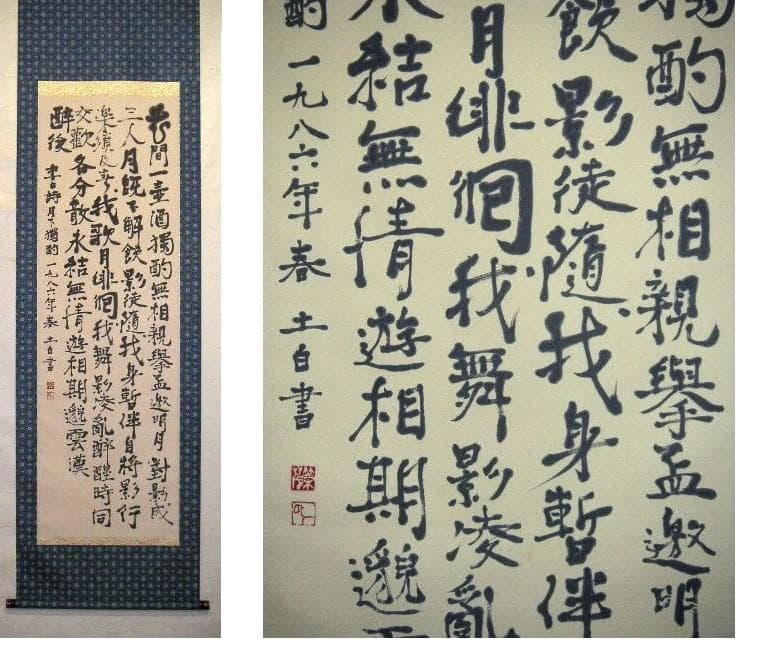 花間一壺酒獨酌無相親擧盃邀明月對影成
三人月既不解飲影徒隨我身暫伴自將影行
樂須及春我歌月徘徊我舞影凌亂醉醒時同
交歡各分散永結無情遊相期邈雲漢
醉後 李白詩月下獨酌 一九八六年春 土白書
獨酌無相親擧盃邀明
飲影徒隨我身暫伴
月徘徊我舞影凌亂
永結無情遊相期邈
酌一九八六年春 土白書